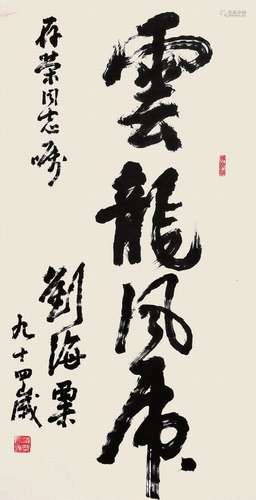 雲龍风虎
存榮同志嘱
劉海粟
九十四歲